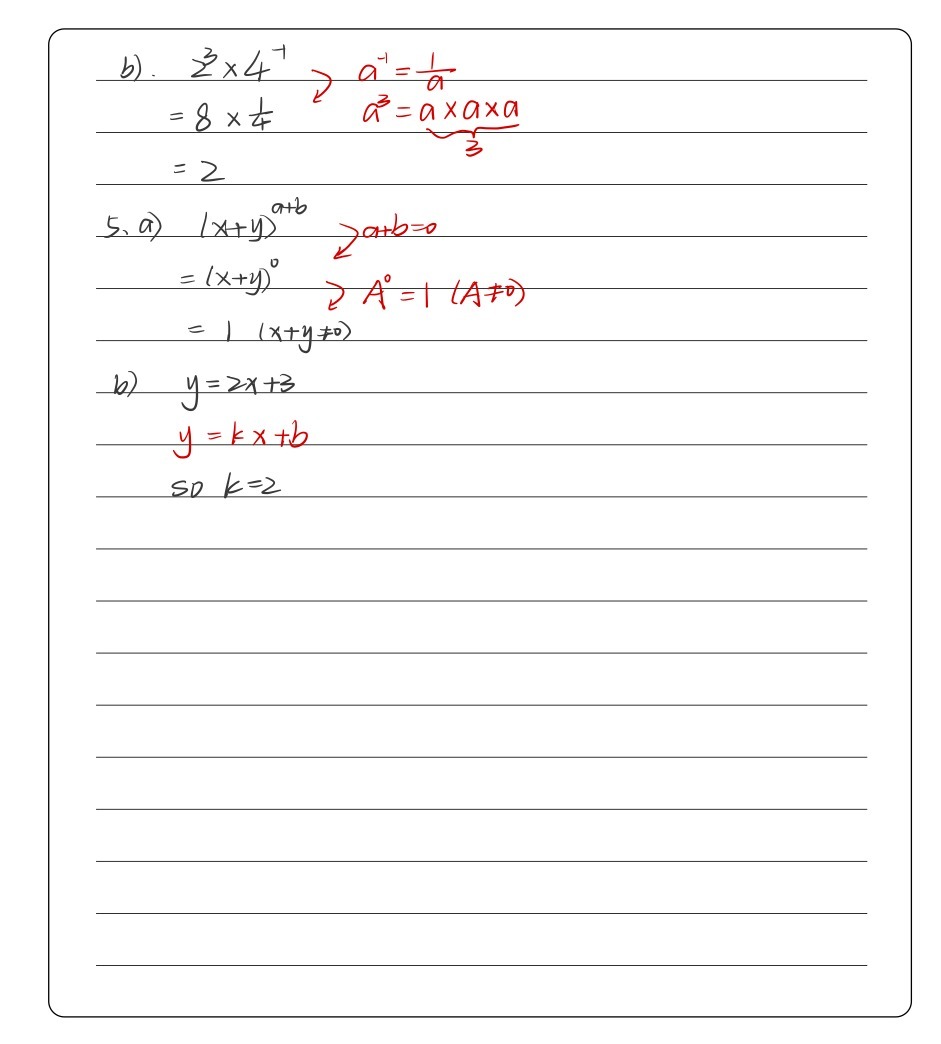 b). 2³ × 4⁻¹ a⁻¹ = 1/a
= 8 × 1/4 a³ = a × a × a
3
= 2
5、a) (x+y)ᵃ⁺ᵇ a+b=0
= (x+y)⁰ A⁰ = 1 (A≠0)
= 1 (x+y≠0)
b) y = 2x+3
y = kx+b
so k=2